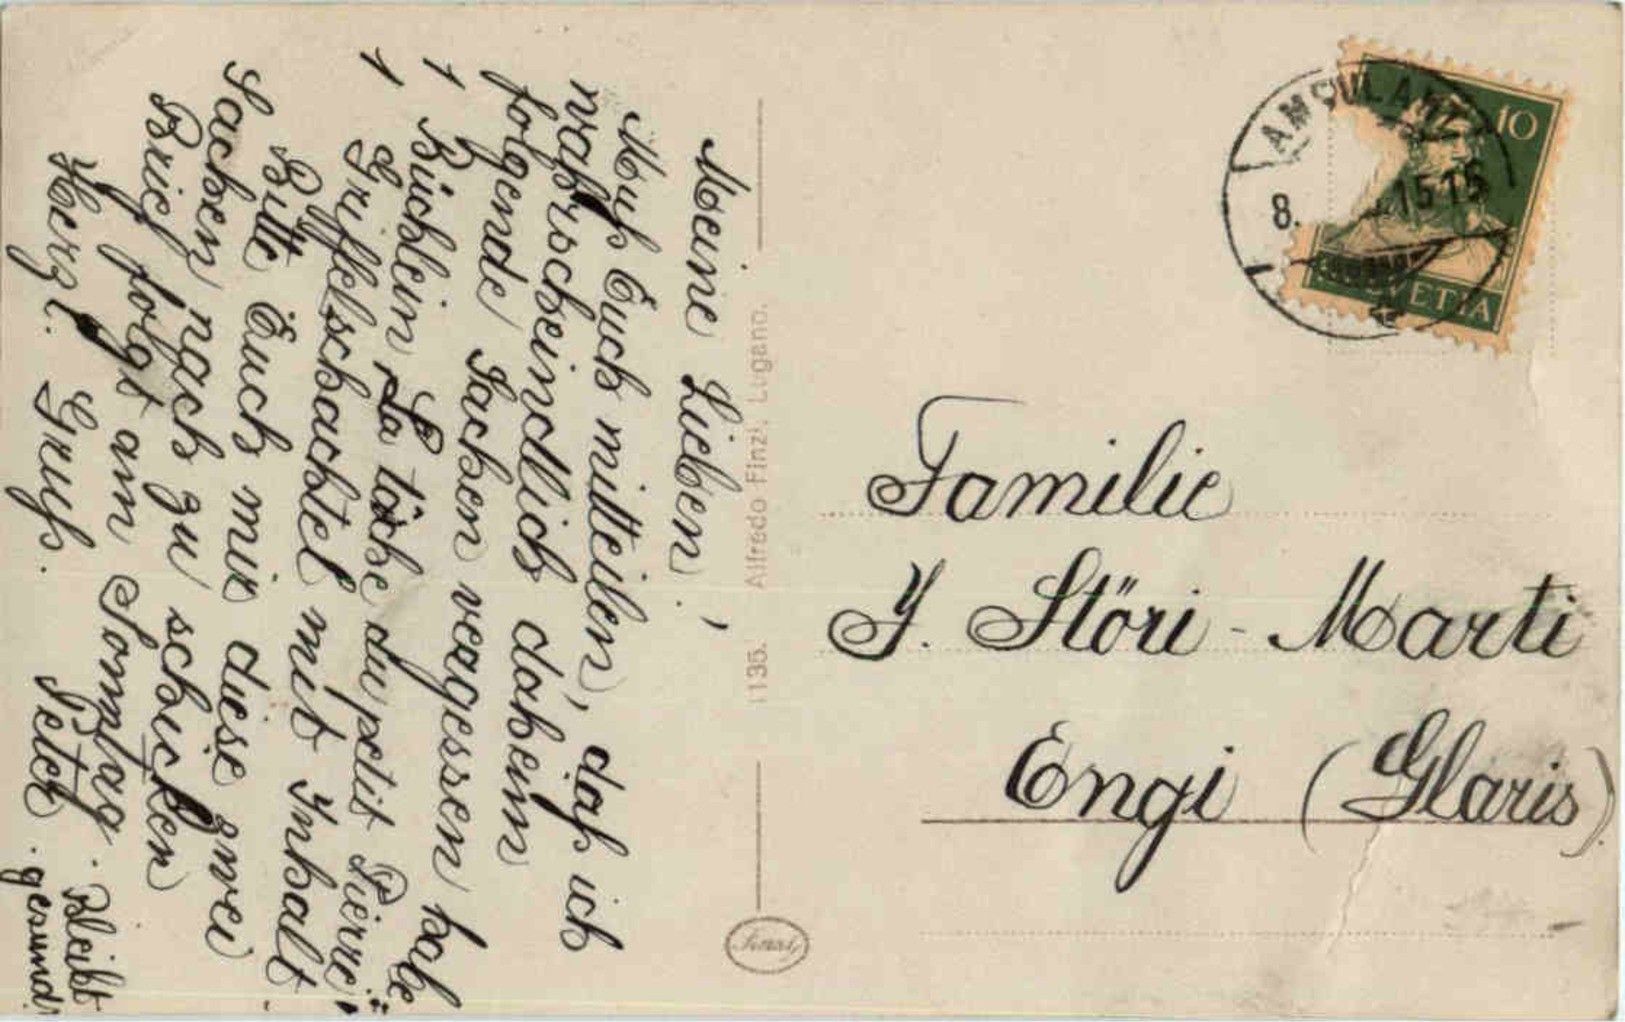 Meine Lieben!
Muss Euch mitteilen, dass ich
wahrscheindlich daheim
folgende Sachen vergessen habe
1 Büchlein „La tâche du petit Pierre"
1 Griffelschachtel mit Inhalt.
Bitte Euch mir diese zwei
Sachen nach zu schicken
Brief folgt am Sonntag. Bleibt
Herzl. Gruss. Peter. gesund!
1135. Alfredo Finzi, Lugano.
Finzi
AMBULANT
8. 1515
10
HELVETIA
Familie
J. Störi-Marti
Engi (Glaris)